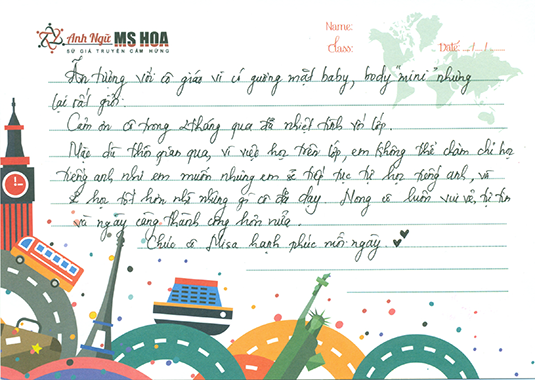 Anh Ngữ MS HOA
SỨ GIẢ TRUYỀN CẢM HỨNG
Name:
Class:
Date: / /
Ấn tượng với cô giáo vì có gương mặt baby, body "mini" nhưng
lại rất giỏi.
Cảm ơn cô trong 2 tháng qua đã nhiệt tình với lớp.
Mặc dù thời gian qua, vì việc học trên lớp, em không thể chăm chỉ học
tiếng anh như em muốn nhưng em sẽ tiếp tục tự học tiếng anh, và
sẽ học tốt hơn nhờ những gì cô đã dạy. Mong cô luôn vui vẻ, tự tin
và ngày càng thành công hơn nữa.
Chúc cô Misa hạnh phúc mỗi ngày.